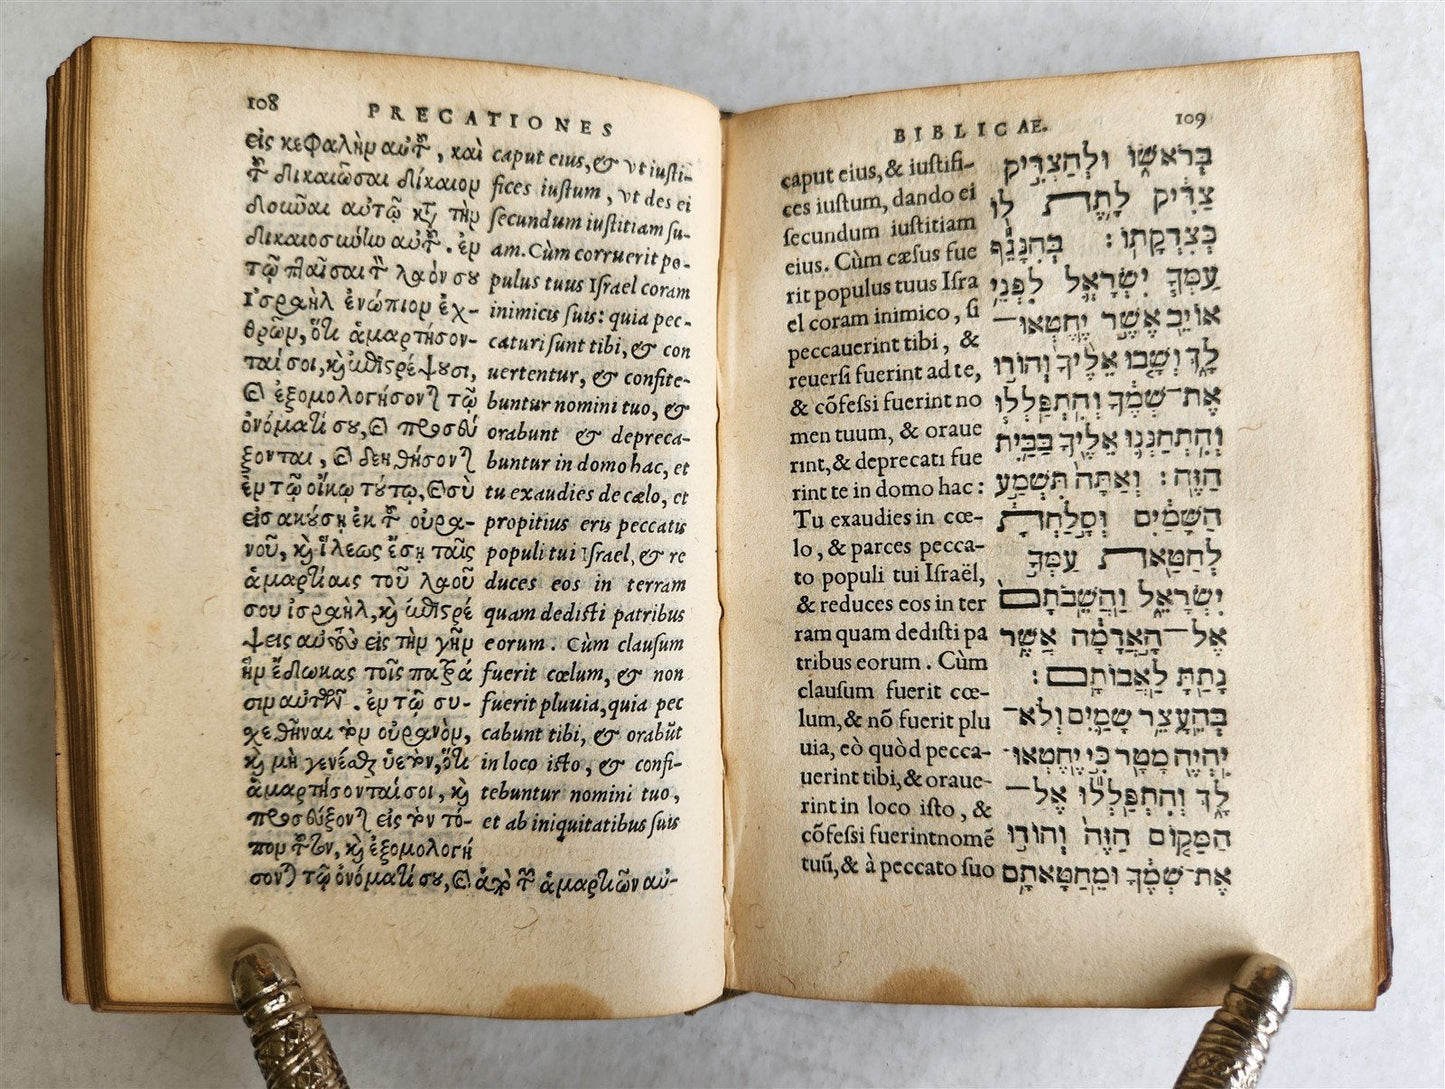 108
PRECATIONES
εἰς κεφαλὴν αὐτοῦ, καὶ
τοῦ δικαιῶσαι δίκαιον
δοῦναι αὐτῷ κατὰ τὴν
δικαιοσύνην αὐτοῦ. ἐν
τῷ πταῖσαι τὸν λαόν σου
Ἰσραὴλ ἐνώπιον ἐχ-
θρῶν, ὅτι ἁμαρτήσον-
ταί σοι, καὶ ἐπιστρέψουσι,
καὶ ἐξομολογήσονται τῷ
ὀνόματί σου, καὶ προσεύ
ξονται, καὶ δεηθήσονται
ἐν τῷ οἴκῳ τούτῳ, καὶ σὺ
εἰσακούσῃ ἐκ τοῦ οὐρα-
νοῦ, καὶ ἵλεως ἔσῃ ταῖς
ἁμαρτίαις τοῦ λαοῦ
σου ἰσραὴλ, καὶ ἐπιστρέ
ψεις αὐτοὺς εἰς τὴν γῆν
ἣν ἔδωκας τοῖς πατρά
σιν αὐτῶν. ἐν τῷ συ-
χεθῆναι τὸν οὐρανὸν,
καὶ μὴ γενέσθαι ὑετὸν, ὅτι
ἁμαρτήσονταί σοι, καὶ
προσεύξονται εἰς τὸν τό-
πον τοῦτον, καὶ ἐξομολογή
σονται τῷ ὀνόματί σου, καὶ ἀπὸ τῶν ἁμαρτιῶν αὐ-
caput eius, & vt iusti-
fices iustum, vt des ei
secundum iustitiam su-
am. Cùm corruerit po-
pulus tuus Israel coram
inimicis suis: quia pec-
caturi sunt tibi, & con
uertentur, & confite-
buntur nomini tuo, &
orabunt & depreca-
buntur in domo hac, et
tu exaudies de cælo, et
propitius eris peccatis
populi tui Israel, & re
duces eos in terram
quam dedisti patribus
eorum. Cùm clausum
fuerit cœlum, & non
fuerit pluuia, quia pec
cabunt tibi, & orabūt
in loco isto, & confi-
tebuntur nomini tuo,
et ab iniquitatibus suis
BIBLICAE.
109
caput eius, & iustifi-
ces iustum, dando ei
secundum iustitiam
eius. Cùm cæsus fue
rit populus tuus Isra
el coram inimico, si
peccauerint tibi, &
reuersi fuerint ad te,
& cōfessi fuerint no
men tuum, & oraue
rint, & deprecati fue
rint te in domo hac:
Tu exaudies in cœ-
lo, & parces pecca-
to populi tui Israël,
& reduces eos in ter
ram quam dedisti pa
tribus eorum. Cùm
clausum fuerit cœ-
lum, & nō fuerit plu
uia, eò quòd pecca-
uerint tibi, & oraue-
rint in loco isto, &
cōfessi fuerint nomē
tuū, & à peccato suo
בְּרֹאשׁוֹ וּלְהַצְדִּיק
צַדִּיק לָתֶת לוֹ
כְּצִדְקָתוֹ׃ בְּהִנָּגֵף
עַמְּךָ יִשְׂרָאֵל לִפְנֵי
אוֹיֵב אֲשֶׁר יֶחֶטְאוּ־
לָךְ וְשָׁבוּ אֵלֶיךָ וְהוֹדוּ
אֶת־שְׁמֶךָ וְהִתְפַּלְלוּ
וְהִתְחַנְּנוּ אֵלֶיךָ בַּבַּיִת
הַזֶּה׃ וְאַתָּה תִּשְׁמַע
הַשָּׁמַיִם וְסָלַחְתָּ
לְחַטַּאת עַמְּךָ
יִשְׂרָאֵל וַהֲשֵׁבֹתָם
אֶל־הָאֲדָמָה אֲשֶׁר
נָתַתָּ לַאֲבוֹתָם׃
בְּהֵעָצֵר שָׁמַיִם וְלֹא־
יִהְיֶה מָטָר כִּי יֶחֶטְאוּ־
לָךְ וְהִתְפַּלְלוּ אֶל־
הַמָּקוֹם הַזֶּה וְהוֹדוּ
אֶת־שְׁמֶךָ וּמֵחַטָּאתָם